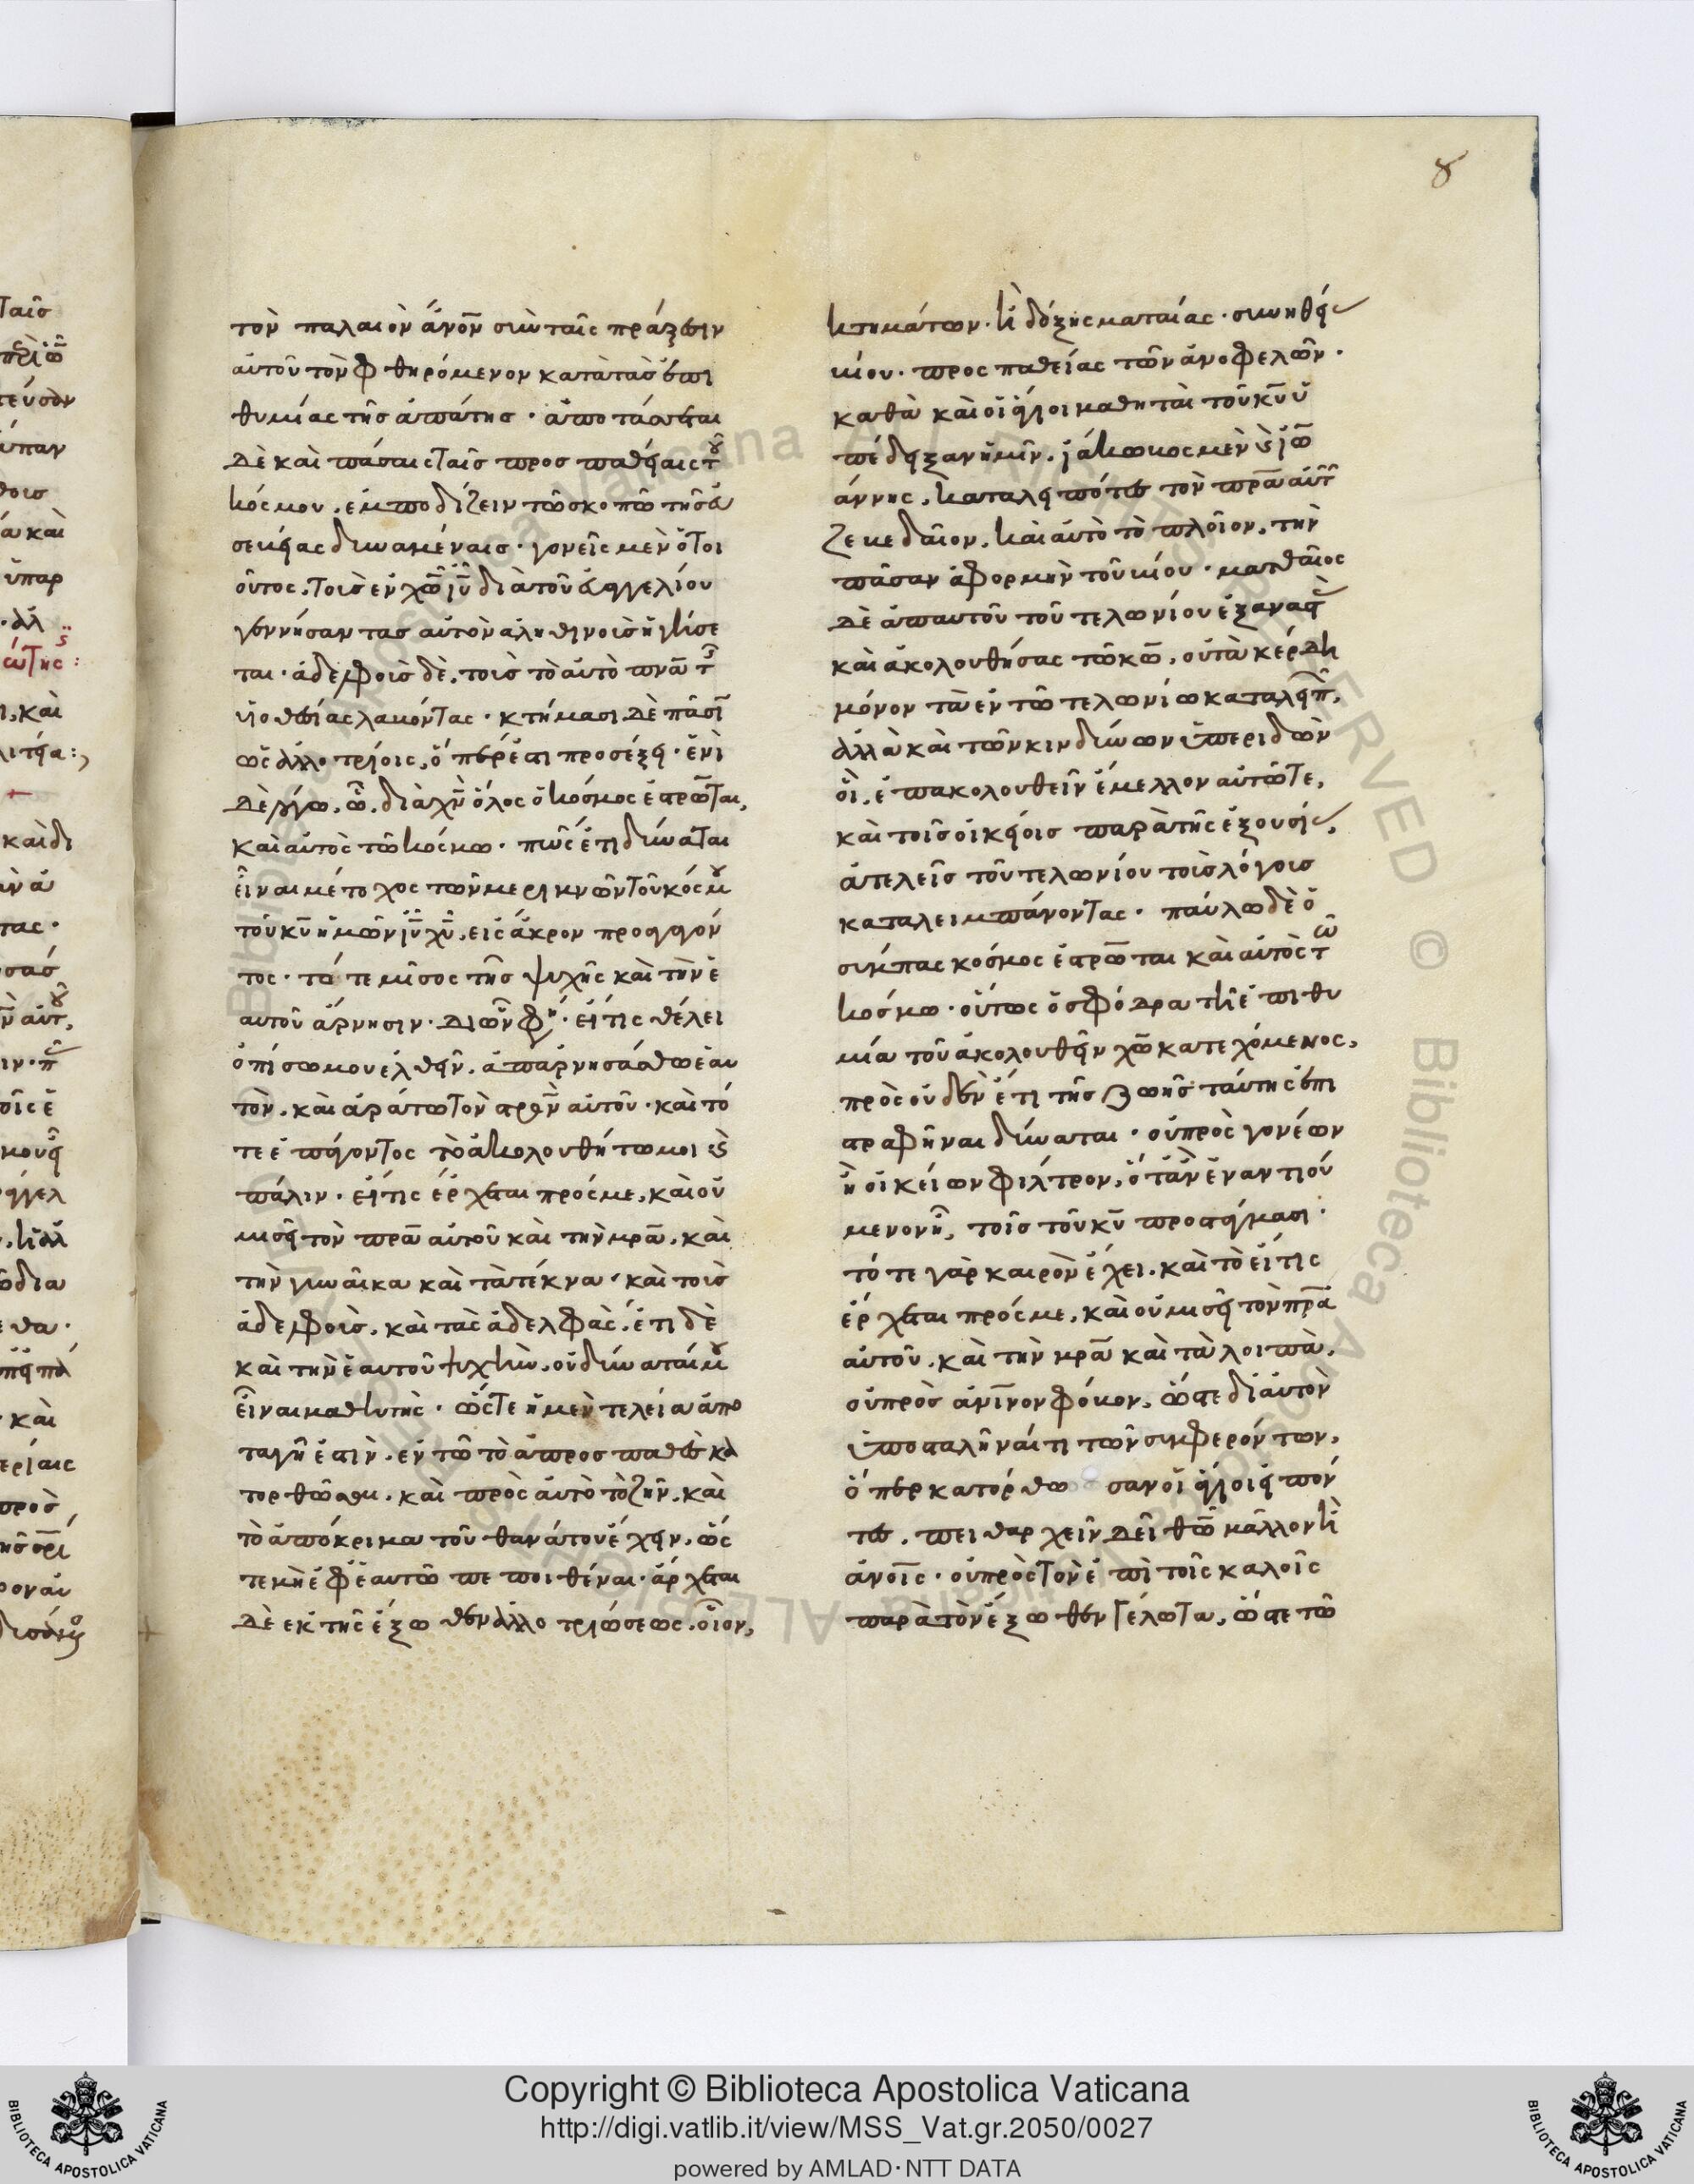 8
τὸν παλαιὸν ἄνον σὺν ταῖς πράξεσιν
αὐτοῦ τὸν φθηρόμενον κατὰ τὰς ἐπι
θυμίας τῆς ἀπάτης · ἀποτάσσεται
δὲ καὶ πάσαις ταῖς προσπαθείαις τοῦ
κόσμου, ἐμποδίζειν τῶ σκοπῶ τῆς εὐ
σεβείας δυναμέναις · γονεῖς μὲν ὁ τοι
οῦτος, τοὺς ἐν χῶ ἰῦ διὰ τοῦ εὐαγγελίου
γεννήσαντας αὐτὸν ἀληθινοὺς ἡγήσε
ται · ἀδελφοὺς δὲ, τοὺς τὸ αὐτὸ πνᾶ τῆς
υἱοθεσίας λαβόντας · κτήμασι δὲ πᾶσι
ὡς ἀλλοτρίοις, ὅπερ ἐστι προσέξει · ἑνὶ
δὲ λόγω, ὧ, διὰ χν ὅλος ὁ κόσμος ἐσταύρωται,
καὶ αὐτὸς τῶ κόσμω · πῶς ἔτι δύναται
εἶναι μέτοχος τῶν μεριμνῶν τοῦ κόσμου
τοῦ κυ ἡμῶν ἰυ χυ, εἰς ἄκρον προαγαγόν
τος · τό τε μῖσος τῆς ψυχῆς καὶ τὴν ἑ
αυτοῦ ἄρνησιν · δι ὧν φη · εἴ τις θέλει
ὀπίσω μου ἐλθεῖν, ἀπαρνησάσθω ἑαυ
τὸν, καὶ ἀράτω τὸν σταυρὸν αὐτοῦ · καὶ τό
τε ἐπάγοντος τὸ ἀκολουθήτω μοι καὶ
πάλιν · εἴ τις ἔρχεται πρός με, καὶ οὐ
μισεῖ τὸν πρα αὐτοῦ καὶ τὴν μρα, καὶ
τὴν γυναῖκα καὶ τὰ τέκνα · καὶ τοὺς
ἀδελφοὺς, καὶ τὰς ἀδελφὰς, ἔτι δὲ
καὶ τὴν ἑαυτοῦ ψυχὴν, οὐ δύναταί μου
εἶναι μαθητής · ὥστε ἡ μὲν τελεία ἀπο
ταγή ἐστὶν, ἐν τῶ τὸ ἀπροσπαθὲς κα
τορθῶσαι, καὶ πρὸς αὐτὸ τὸ ζῆν, καὶ
τὸ ἀπόκριμα τοῦ θανάτου ἔχειν, ὥς
τε μὴ ἐφ ἑαυτῶ πεποιθέναι · ἄρχεται
δὲ ἐκ τῆς ἔξωθεν ἀλλοτριώσεως, οἷον,
κτημάτων · ἢ δόξης ματαίας · συνηθείας
βίου · προσπαθείας τῶν ἀνοφελῶν ·
καθὰ καὶ οἱ ἅγιοι μαθηταὶ τοῦ κυ ὑ
πέδειξαν ἡμῖν, ἰάκωβος μὲν καὶ ἰω
άννης, καταλειπόντες τὸν πρα αὐτῶν
ζεβεδαῖον, καὶ αὐτὸ τὸ πλοῖον, τὴν
πᾶσαν ἀφορμὴν τοῦ βίου · ματθαῖος
δὲ ἀπ αυτοῦ τοῦ τελωνίου ἐξαναστὰς
καὶ ἀκολουθήσας τῶ κω, οὐ τὰ κέρδη
μόνον τὰ ἐν τῶ τελωνίω καταλειπὼν,
ἀλλὰ καὶ τῶν κινδύνων ὑπεριδὼν
οἳ, ἐπακολουθεῖν ἔμελλον αὐτῶ τε,
καὶ τοῖς οἰκείοις παρὰ τῆς ἐξουσίας,
ἀτελεῖς τοῦ τελωνίου τοὺς λόγους
καταλειμπάνοντας · παύλω δὲ ὁ
σύμπας κόσμος ἐσταύρωται καὶ αὐτὸς τῶ
κόσμω · οὕτως ὁ σφόδρα τῆ ἐπιθυ
μία τοῦ ἀκολουθεῖν χω κατεχόμενος,
πρὸς οὐδὲν ἔτι τῆς ζωῆς ταύτης ἐπι
στραφῆναι δύναται · οὐ πρὸς γονέων
ἢ οἰκείων φίλτρον, ὅταν ἐναντιού
μενον ἦ, τοῖς τοῦ κυ προστάγμασι ·
τότε γὰρ καιρὸν ἔχει, καὶ τὸ εἴ τις
ἔρχεται πρός με, καὶ οὐ μισεῖ τὸν πρα
αὐτοῦ, καὶ τὴν μρα καὶ τὰ λοιπὰ,
οὐ πρὸς ἀνινον φόβον, ὥστε δι αὐτὸν
ὑποσταλῆναί τι τῶν συμφερόντων,
ὅπερ κατόρθωσαν οἱ ἅγιοι εἰπόν
τες, πειθαρχεῖν δεῖ θω μᾶλλον ἢ
ἀνοις · οὐ πρὸς τὸν ἐπὶ τοῖς καλοῖς
παρὰ τὸν ἔξωθεν γέλωτα, ὥστε τῶ
Copyright © Biblioteca Apostolica Vaticana
http://digi.vatlib.it/view/MSS_Vat.gr.2050/0027
powered by AMLAD·NTT DATA